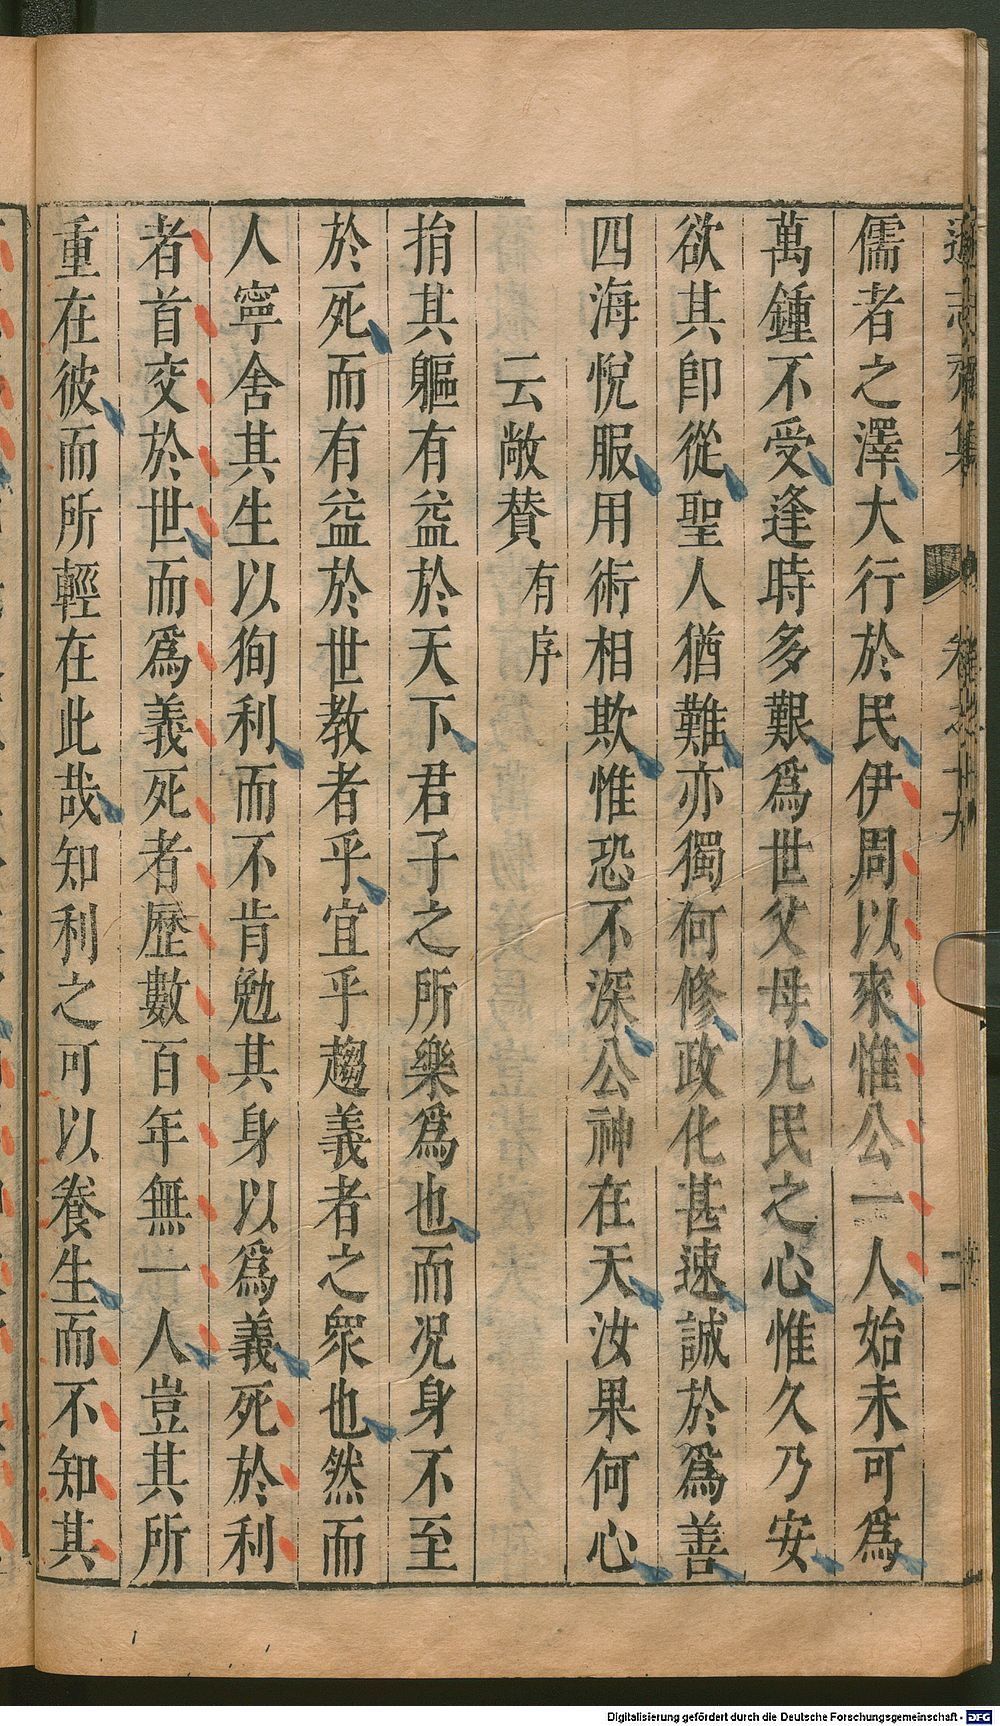 遜志齋集 卷之十九 二
儒者之澤大行於民伊周以來惟公一人始未可爲
萬鍾不受逢時多艱爲世父母凡民之心惟久乃安
欲其卽從聖人猶難亦獨何修政化甚速誠於爲善
四海悅服用術相欺惟恐不深公神在天汝果何心
云敞贊 有序
捐其軀有益於天下君子之所樂爲也而況身不至
於死而有益於世教者乎宜乎趨義者之衆也然而
人寧舍其生以狥利而不肯勉其身以爲義死於利
者首交於世而爲義死者歷數百年無一人豈其所
重在彼而所輕在此哉知利之可以養生而不知其
Digitalisierung gefördert durch die Deutsche Forschungsgemeinschaft - DFG